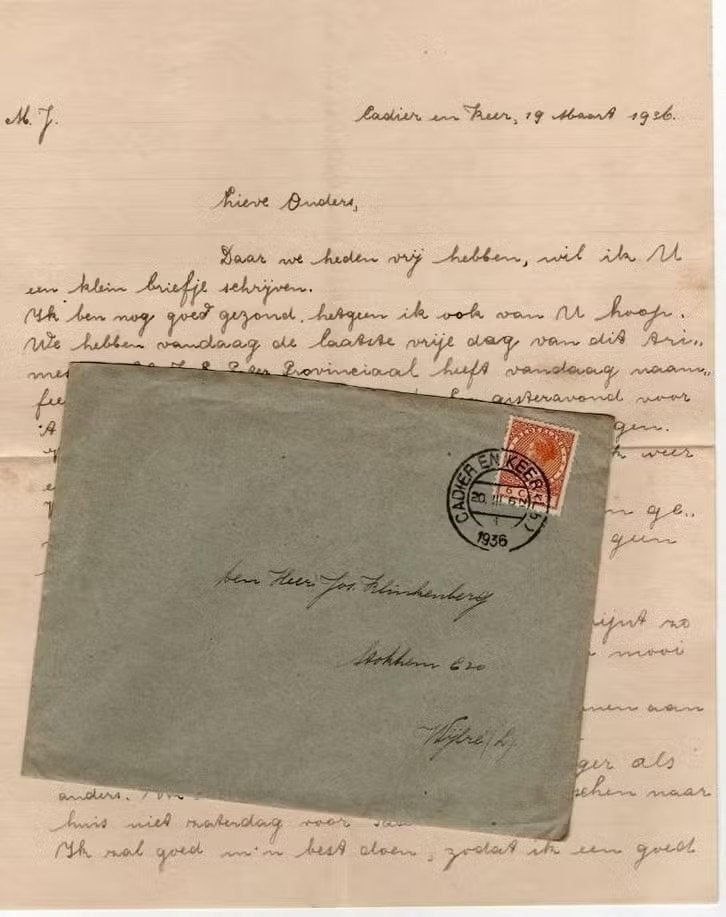 M. J.
Cadier en Keer, 19 Maart 1936.
Lieve Ouders,
Daar we heden vrij hebben, wil ik U
een klein briefje schrijven.
Ik ben nog goed gezond, hetgeen ik ook van U hoop.
We hebben vandaag de laatste vrije dag van dit tri„
mes Provinciaal heeft vandaag naam„
fee gisteravond voor
gen.
k weer
n ge„
geen
ijnt zo
mooi
nnen aan
ger als
anders. schen naar
huis niet zaterdag voor
Ik zal goed m'n best doen, zodat ik een goed
NEDERLAND
6 C
CADIER EN KEER (LB.)
20. III
1936
den Heer Jos. Klinkenberg
Stokhem E20
Wijlre (L)